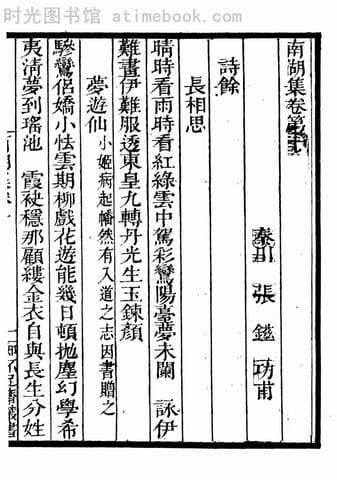 时光图书馆 www.atimebook.com
南湖集卷第
秦川 張 鎡 功甫
詩餘
長相思
晴時看雨時看紅綠雲中駕彩鸞陽臺夢未闌 詠伊
難畫伊難服透東皇九轉丹光生玉鍊顏
夢遊仙 小姬病起幡然有入道之志因書贈之
驂鸞侶嬌小怯雲期柳戲花遊能幾日頓抛塵幻學希
夷淸夢到瑤池 霞袂穩那顧縷金衣自與長生分姓
知不足齋叢書